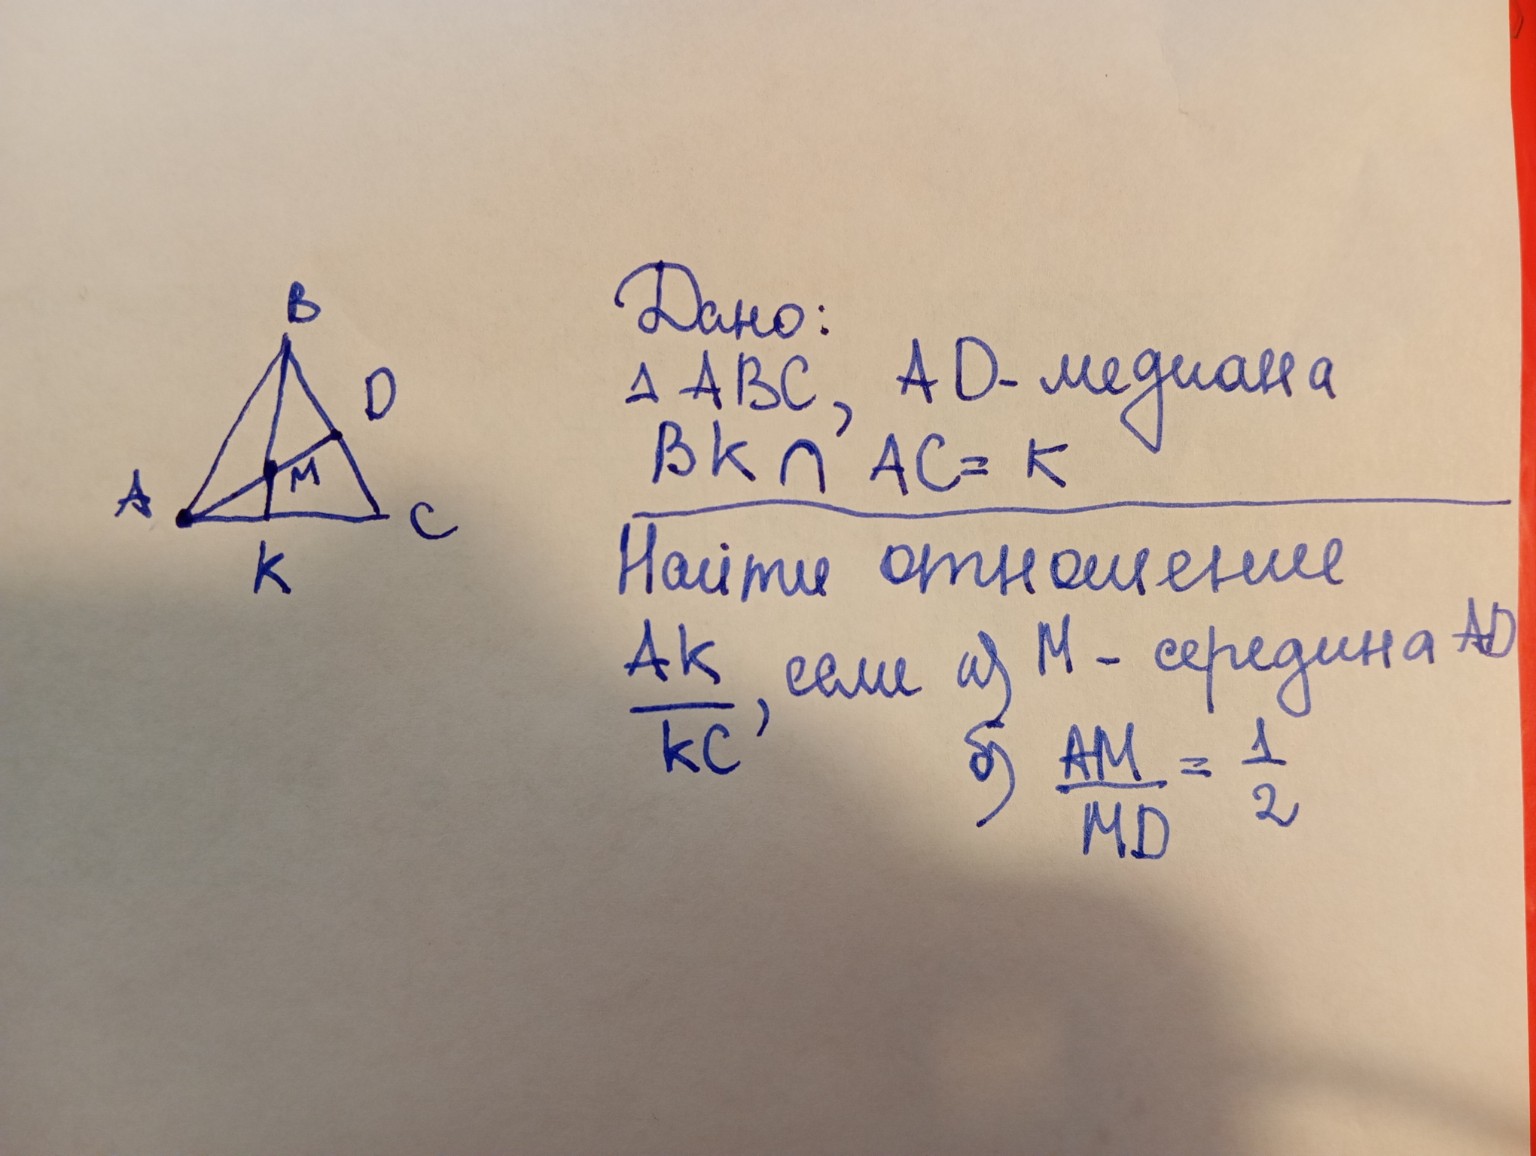 B
D
A
M
C
K
Дано:
△ ABC, AD - медиана
BK ∩ AC = K
Найти отношение
AK/KC, если а) M - середина AD
б) AM/MD = 1/2